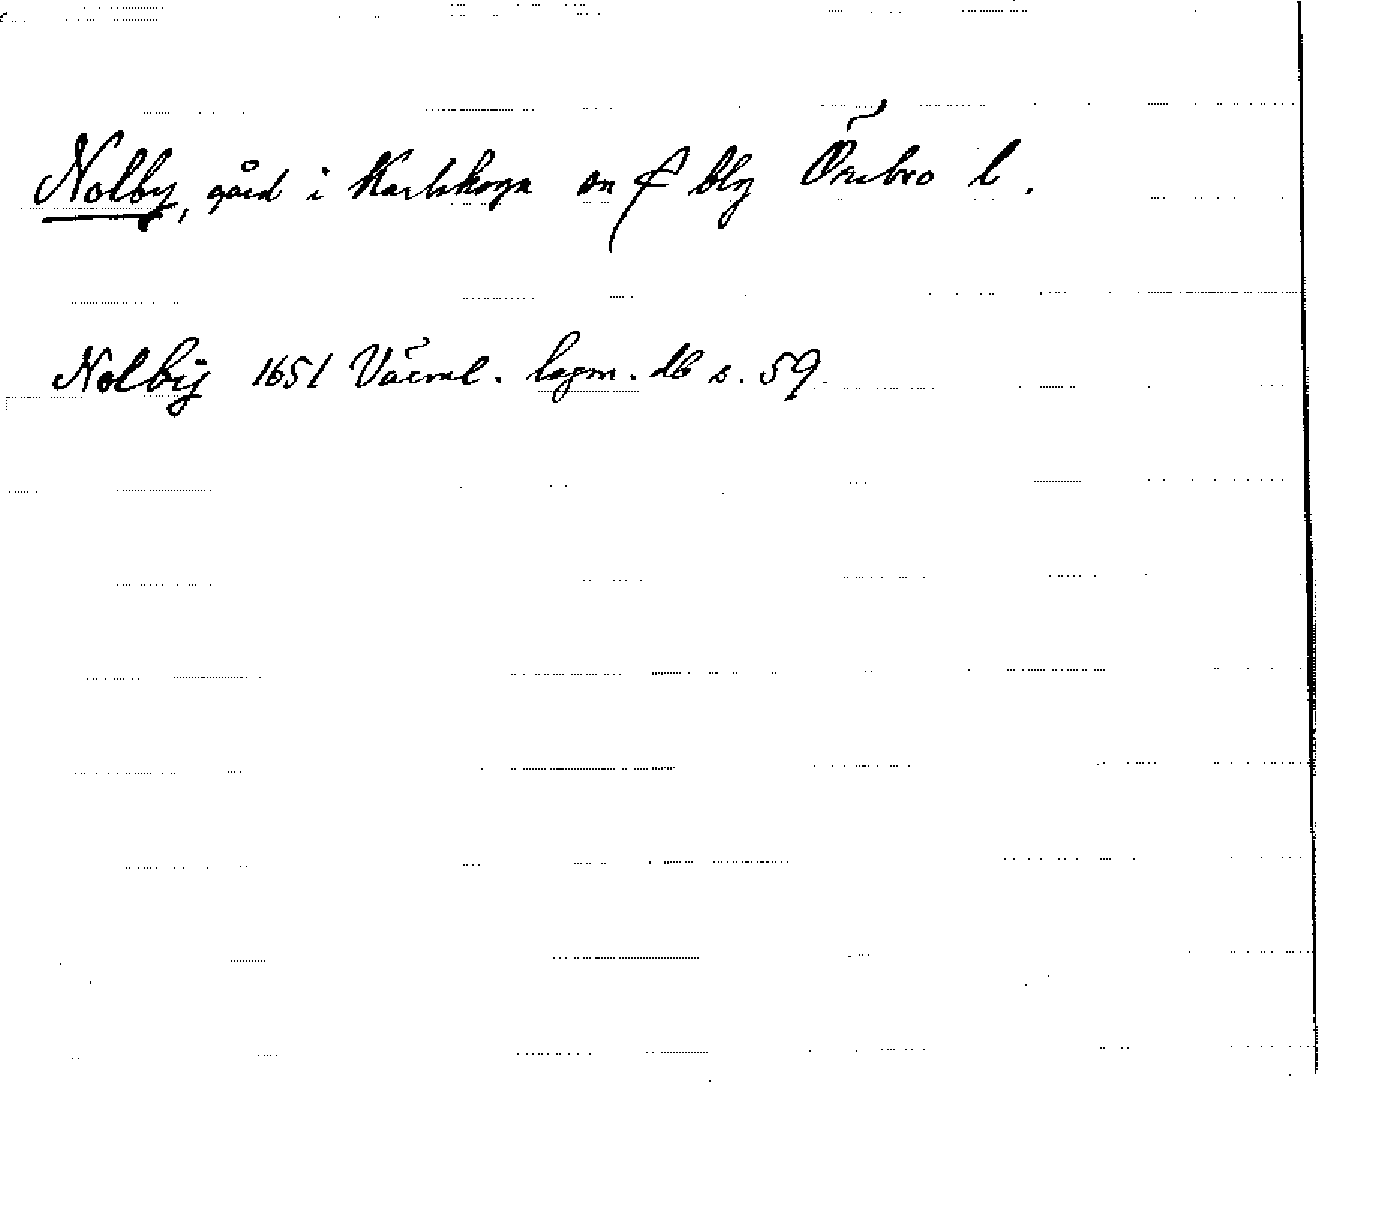 Nolby, gård i Karlskoga sn f blg Örebro l.
Nolbÿ 1651 Värml. lagm. db s. 59